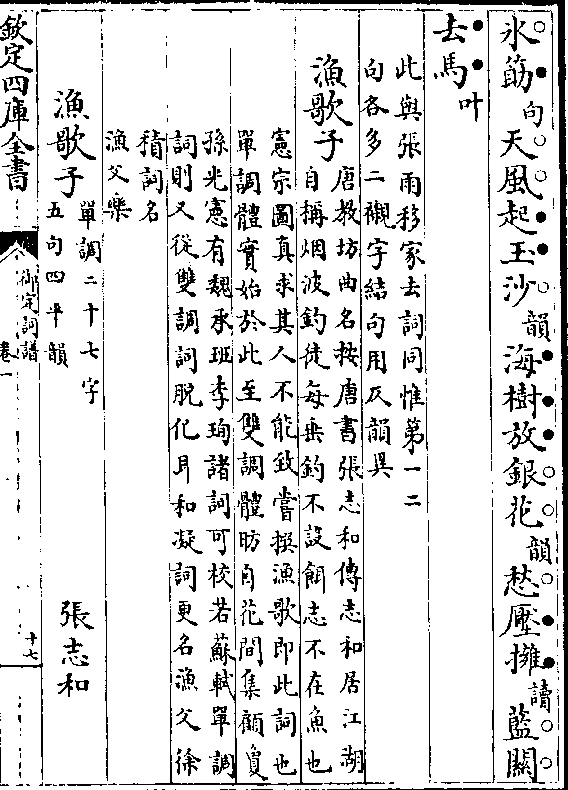 氷筯句天風起玉沙韻海樹放銀花韻愁壓擁讀藍關
去馬叶
此與張雨移家去詞同惟第一二
句各多二襯字結句用仄韻異
漁歌子唐教坊曲名按唐書張志和傳志和居江湖
自稱烟波釣徒每垂釣不設餌志不在魚也
憲宗圖真求其人不能致嘗撰漁歌即此詞也
單調體實始於此至雙調體昉自花間集顧夐
孫光憲有魏承班李珣諸詞可校若蘇軾單調
詞則又從雙調詞脫化耳和凝詞更名漁父徐
積詞名
漁父樂
漁歌子單調二十七字
五句四平韻
張志和
欽定四庫全書
御定詞譜
卷一
十七